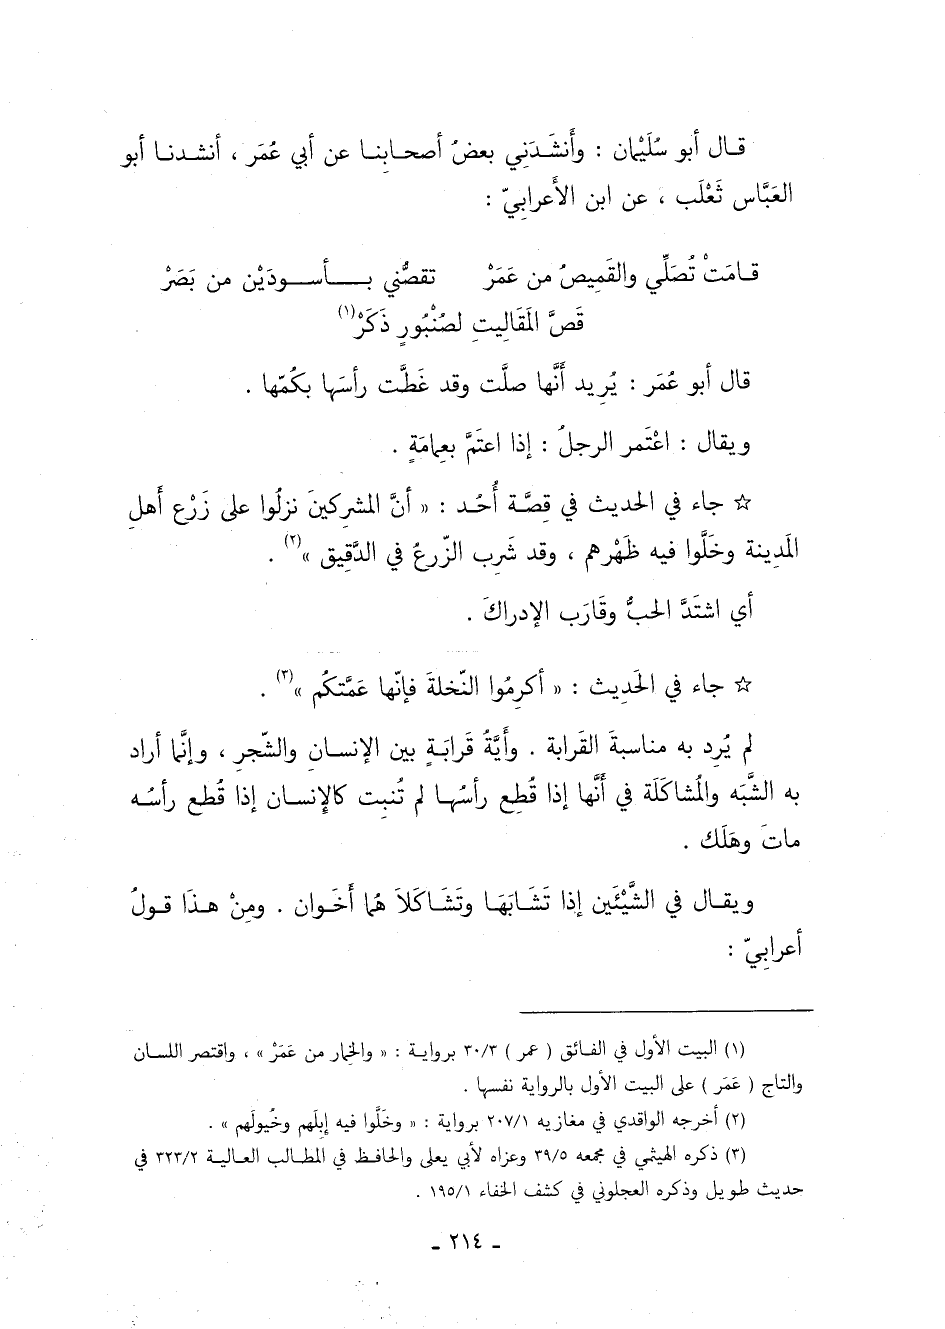 قال أبو سُلَيْمان : وأَنشَدَني بعضُ أصحابِنا عن أبي عُمَر ، أنشدنا أبو
العَبَّاس ثَعْلَب ، عن ابن الأَعرابيّ :
قامَتْ تُصَلِّي والقَمِيصُ من عَمَرْ تقصُّني بأسودَيْن من بَصَرْ
قَصَّ المَقَاليتِ لصُنْبُورٍ ذَكَرْ(١)
قال أبو عُمَر : يُرِيد أَنَّها صلَّت وقد غَطَّت رأسَها بكُمّها .
ويقال : اعْتَمر الرجلُ : إذا اعتَمَّ بعِمامَةٍ .
☆ جاء في الحديث في قِصَّة أُحُد : « أنَّ المشركينَ نزلُوا على زَرْع أهلِ
المَدِينة وخَلَّوا فيه ظَهْرهم ، وقد شَرِب الزّرعُ في الدَّقِيق »(٢) .
أي اشتَدَّ الحبُّ وقَارَب الإدراكَ .
☆ جاء في الحَدِيث : « أكرِمُوا النّخلةَ فإنّها عَمَّتكُم »(٣) .
لم يُرِد به مناسبةَ القَرابة . وأَيَّةُ قَرابَةٍ بين الإنسانِ والشّجرِ ، وإنَّما أراد
به الشَّبَه والمُشاكَلَة في أنَّها إذا قُطِع رأسُها لم تُنبِت كالإنسان إذا قُطع رأسُه
ماتَ وهَلَك .
ويقال في الشَّيْئَين إذا تَشَابَهَا وتَشَاكَلاَ هُما أَخَوان . ومِنْ هذَا قولُ
أعرابِيّ :
(١) البيت الأول في الفائق ( عمر ) ٣٠/٣ برواية : « والخِمار من عَمَرْ » ، واقتصر اللسان
والتاج ( عَمَر ) على البيت الأول بالرواية نفسها .
(٢) أخرجه الواقدي في مغازيه ٢٠٧/١ برواية : « وخَلَّوا فيه إبلَهم وخُيولَهم » .
(٣) ذكره الهيثمي في مجمعه ٣٩/٥ وعزاه لأبي يعلى والحافظ في المطالب العالية ٣٢٣/٢ في
حديث طويل وذكره العجلوني في كشف الخفاء ١٩٥/١ .
ـ ٢١٤ ـ